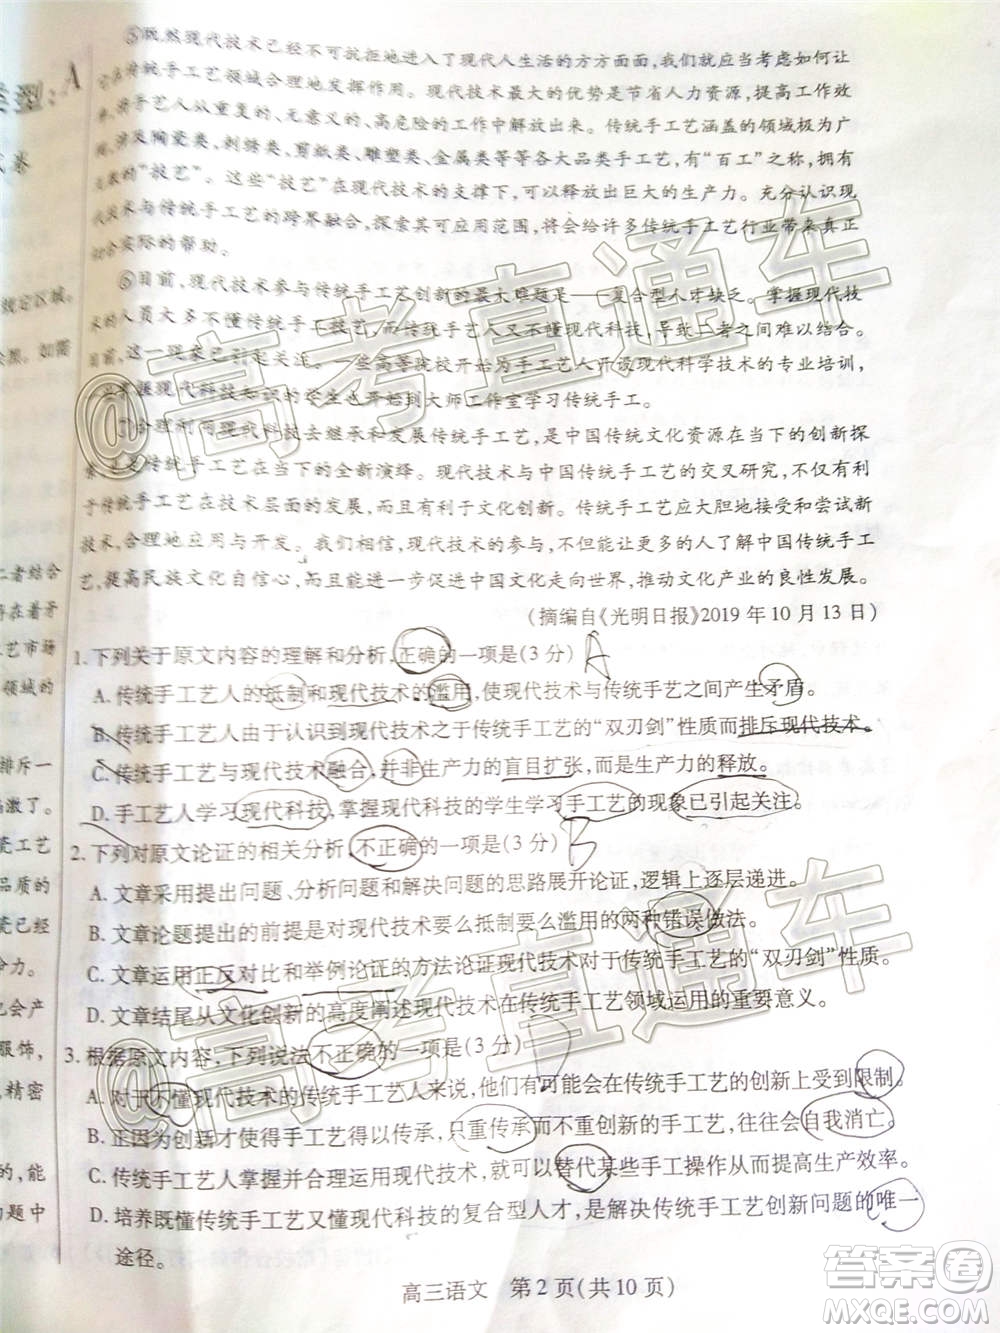 ⑤既然现代技术已经不可抗拒地进入了现代人生活的方方面面,我们就应当考虑如何让
它在传统手工艺领域合理地发挥作用。现代技术最大的优势是节省人力资源,提高工作效
率,将手艺人从重复的、无意义的、高危险的工作中解放出来。传统手工艺涵盖的领域极为广
泛,涉及陶瓷类、刺绣类、剪纸类、雕塑类、金属类等等各大品类手工艺,有“百工”之称,拥有
的“技艺”。这些“技艺”在现代技术的支撑下,可以释放出巨大的生产力。充分认识现
代技术与传统手工艺的跨界融合,探索其可应用范围,将会给许多传统手工艺行业带来真正
切合实际的帮助。
⑥目前,现代技术参与传统手工艺创新的最大难题是——复合型人才缺乏。掌握现代技
术的人员大多不懂传统手工技艺,而传统手工艺人又不懂现代科技,导致二者之间难以结合。
目前,这一现象已引起关注。一些高等院校开始为手工艺人开设现代科学技术的专业培训,
一些掌握现代科技知识的学生也开始到大师工作室学习传统手工。
⑦合理利用现代科技去继承和发展传统手工艺,是中国传统文化资源在当下的创新探
索,又是在当下的全新演绎。现代技术与中国传统手工艺的交叉研究,不仅有利
于传统手工艺在技术层面的发展,更有利于文化创新。传统手工艺应大胆地接受和尝试新
技术,合理地应用与开发。我们相信,现代技术的参与,不但能让更多的人了解中国传统手工
艺,提高民族文化自信心,还能促进中国文化走向世界,推动文化产业的良性发展。
(摘编自《光明日报》2019年10月13日)
1. 下列关于原文内容的理解和分析,正确的一项是(3分) A
A. 传统手工艺人的抵制和现代技术的滥用,使现代技术与传统手艺之间产生矛盾。
B. 传统手工艺人由于认识到现代技术之于传统手工艺的“双刃剑”性质而排斥现代技术。
C. 传统手工艺与现代技术融合,并非生产力的盲目扩张,而是生产力的释放。
D. 手工艺人学习现代科技,掌握现代科技的学生学习手工艺的现象已引起关注。
2. 下列对原文论证的相关分析,不正确的一项是(3分) B
A. 文章采用提出问题、分析问题和解决问题的思路展开论证,逻辑上逐层递进。
B. 文章论题提出的前提是对现代技术要么抵制要么滥用的两种错误做法。
C. 文章运用正反对比和举例论证的方法论证现代技术对于传统手工艺的“双刃剑”性质。
D. 文章结尾从文化创新的高度阐述现代技术在传统手工艺领域运用的重要意义。
3. 根据原文内容,下列说法不正确的一项是(3分)
A. 对于不懂现代技术的传统手工艺人来说,他们有可能会在传统手工艺的创新上受到限制。
B. 正因为创新才使得手工艺得以传承,只重传承而不重创新的手工艺,将会自我消亡。
C. 传统手工艺人掌握并合理运用现代技术,可以替代某些手工操作从而提高生产效率。
D. 培养既懂传统手工艺又懂现代科技的复合型人才,是解决传统手工艺创新问题的唯一
途径。
高三语文 第2页(共10页)
类型:A
规定区域
如需
二者结合
存在着矛
工艺市场
领域的
排斥一
偏激了。
瓷工艺
品质的
瓷已经
分力。
也会产
服饰,
精密
的,能
的题中
@高考直通车
@高考直通车
答案圈
MXQE.COM